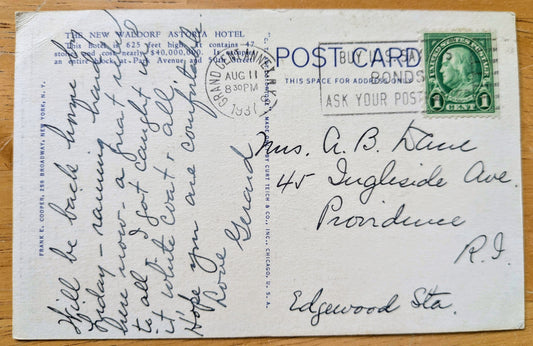 THE NEW WALDORF ASTORIA HOTEL
This hotel is 625 feet high. It contains 47
stories and cost nearly $40,000,000. It occupies
an entire block at Park Avenue and 50th Street
FRANK E. COOPER, 298 BROADWAY, NEW YORK, N. Y.
Will be back home on
Friday - raining hard
here now - a great relief
to all. I got caught in
it white coat & all
Hope you are comfortable
Love Gerard
MADE ONLY BY CURT TEICH & CO., INC., CHICAGO, U. S. A.
POST CARD
THIS SPACE FOR ADDRESS ONLY
GRAND CENTRAL ANNEX N.Y.
AUG 11
8 30 PM
1931
BUY U.S. SAV
BONDS
ASK YOUR POST
UNITED STATES POSTAGE
FRANKLIN
1 1
CENT
Mrs. A. B. Dane
45 Ingleside Ave.
Providence
R.I.
Edgewood Sta.